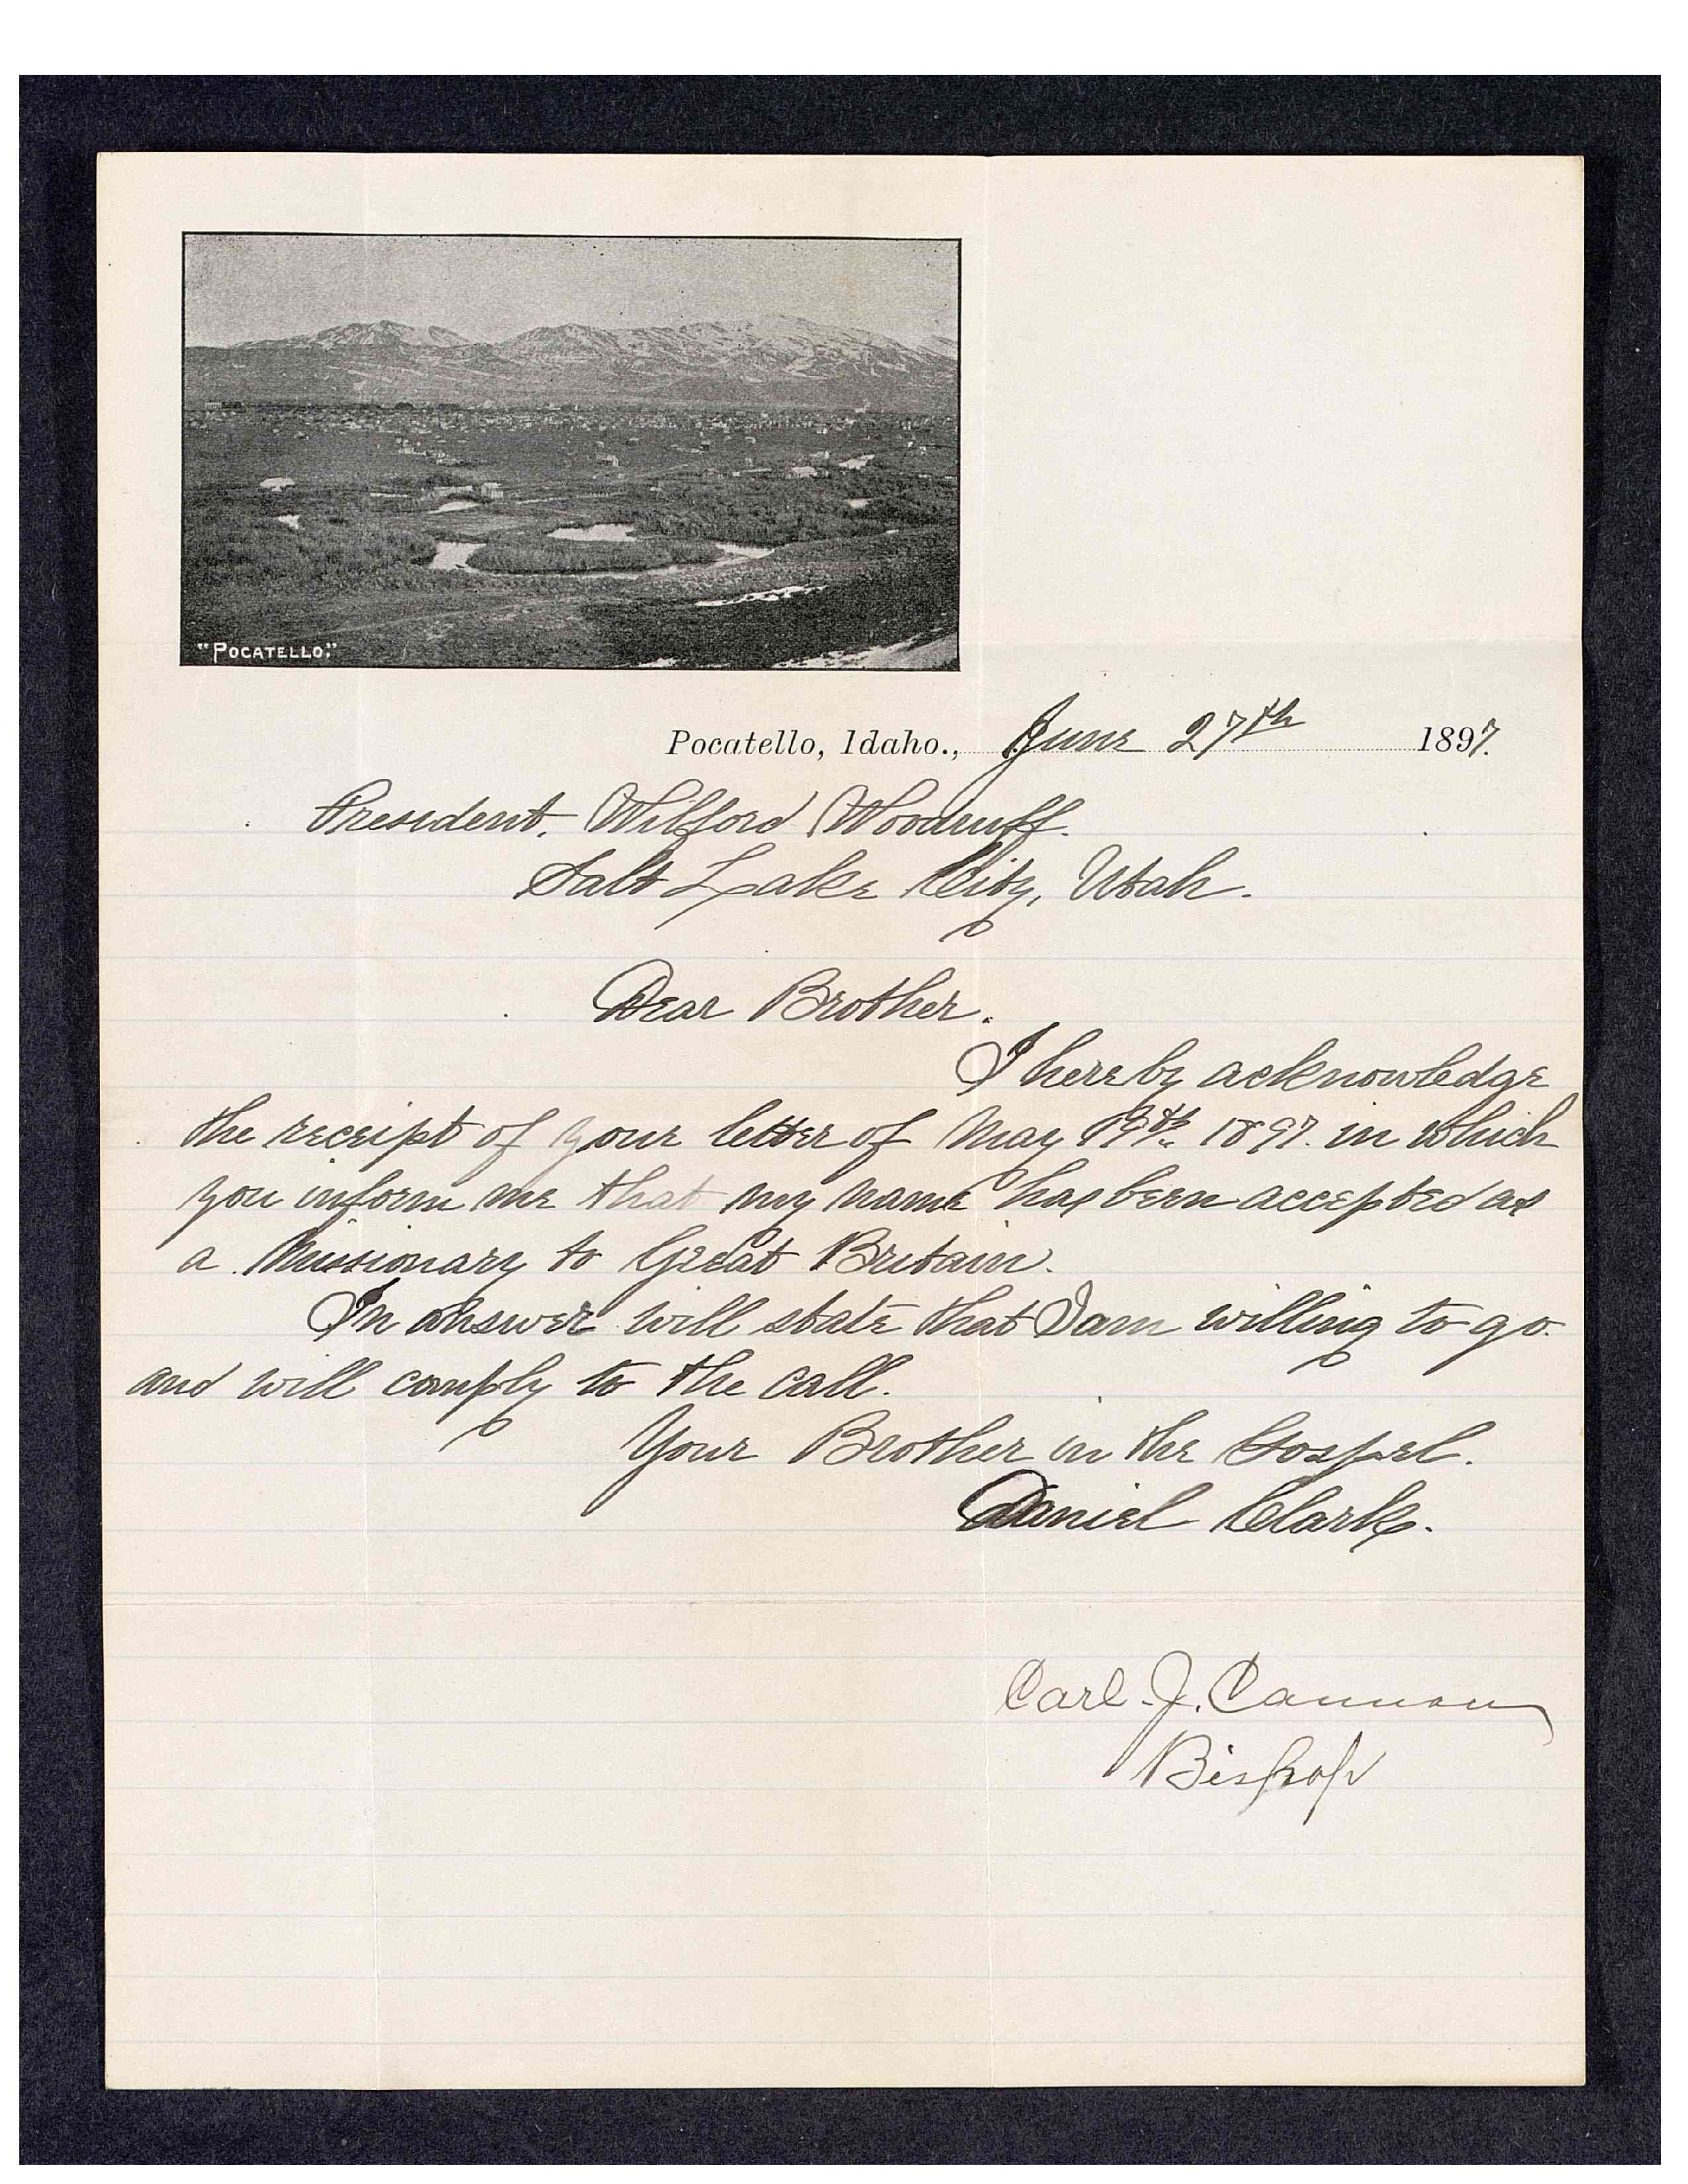 "POCATELLO."
Pocatello, Idaho., June 27th 1897.
President. Wilford Woodruff.
Salt Lake City, Utah.
Dear Brother.
I hereby acknowledge
the receipt of your letter of May 19th 1897. in which
you inform me that my name has been accepted as
a Missionary to Great Britain.
In answer will state that I am willing to go.
and will comply to the call.
Your Brother in the Gospel.
Daniel Clark.
Carl J. Cannon
Bishop